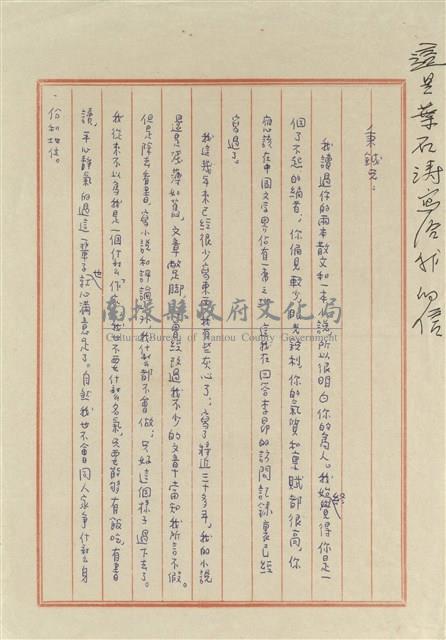 這是葉石濤寫給我的信
秉鉞兄：
我讀過你的兩本散文和一本小說所以很明白你的為人。我始終覺得你是一
個了不起的編者，你偏見較少，眼光銳利，你的氣質和稟賦都很高，你
應該在中國文學界佔有一席之地，這我在回答李昂的訪問記錄裏已經
寫過了。
我這幾年來已經很少寫東西，我有些灰心了；寫了將近三十多年，我的小說
還是淫薄如蕉，文章蹩腳，你曾經改過我不少的文章十當知我所言不假。
但是除去看書、寫小說和評論以外我什么都不會做；只好這個樣子過下去了。
我從來不以為我是一個什么作家，我不要什么名氣只要能夠有飯吃，有書
讀，平心靜氣的過這一輩子也就心滿意足了。自然我也不會同人家爭什么身
份和地位。
南投縣政府文化局
Cultural Bureau of Nantou County Government